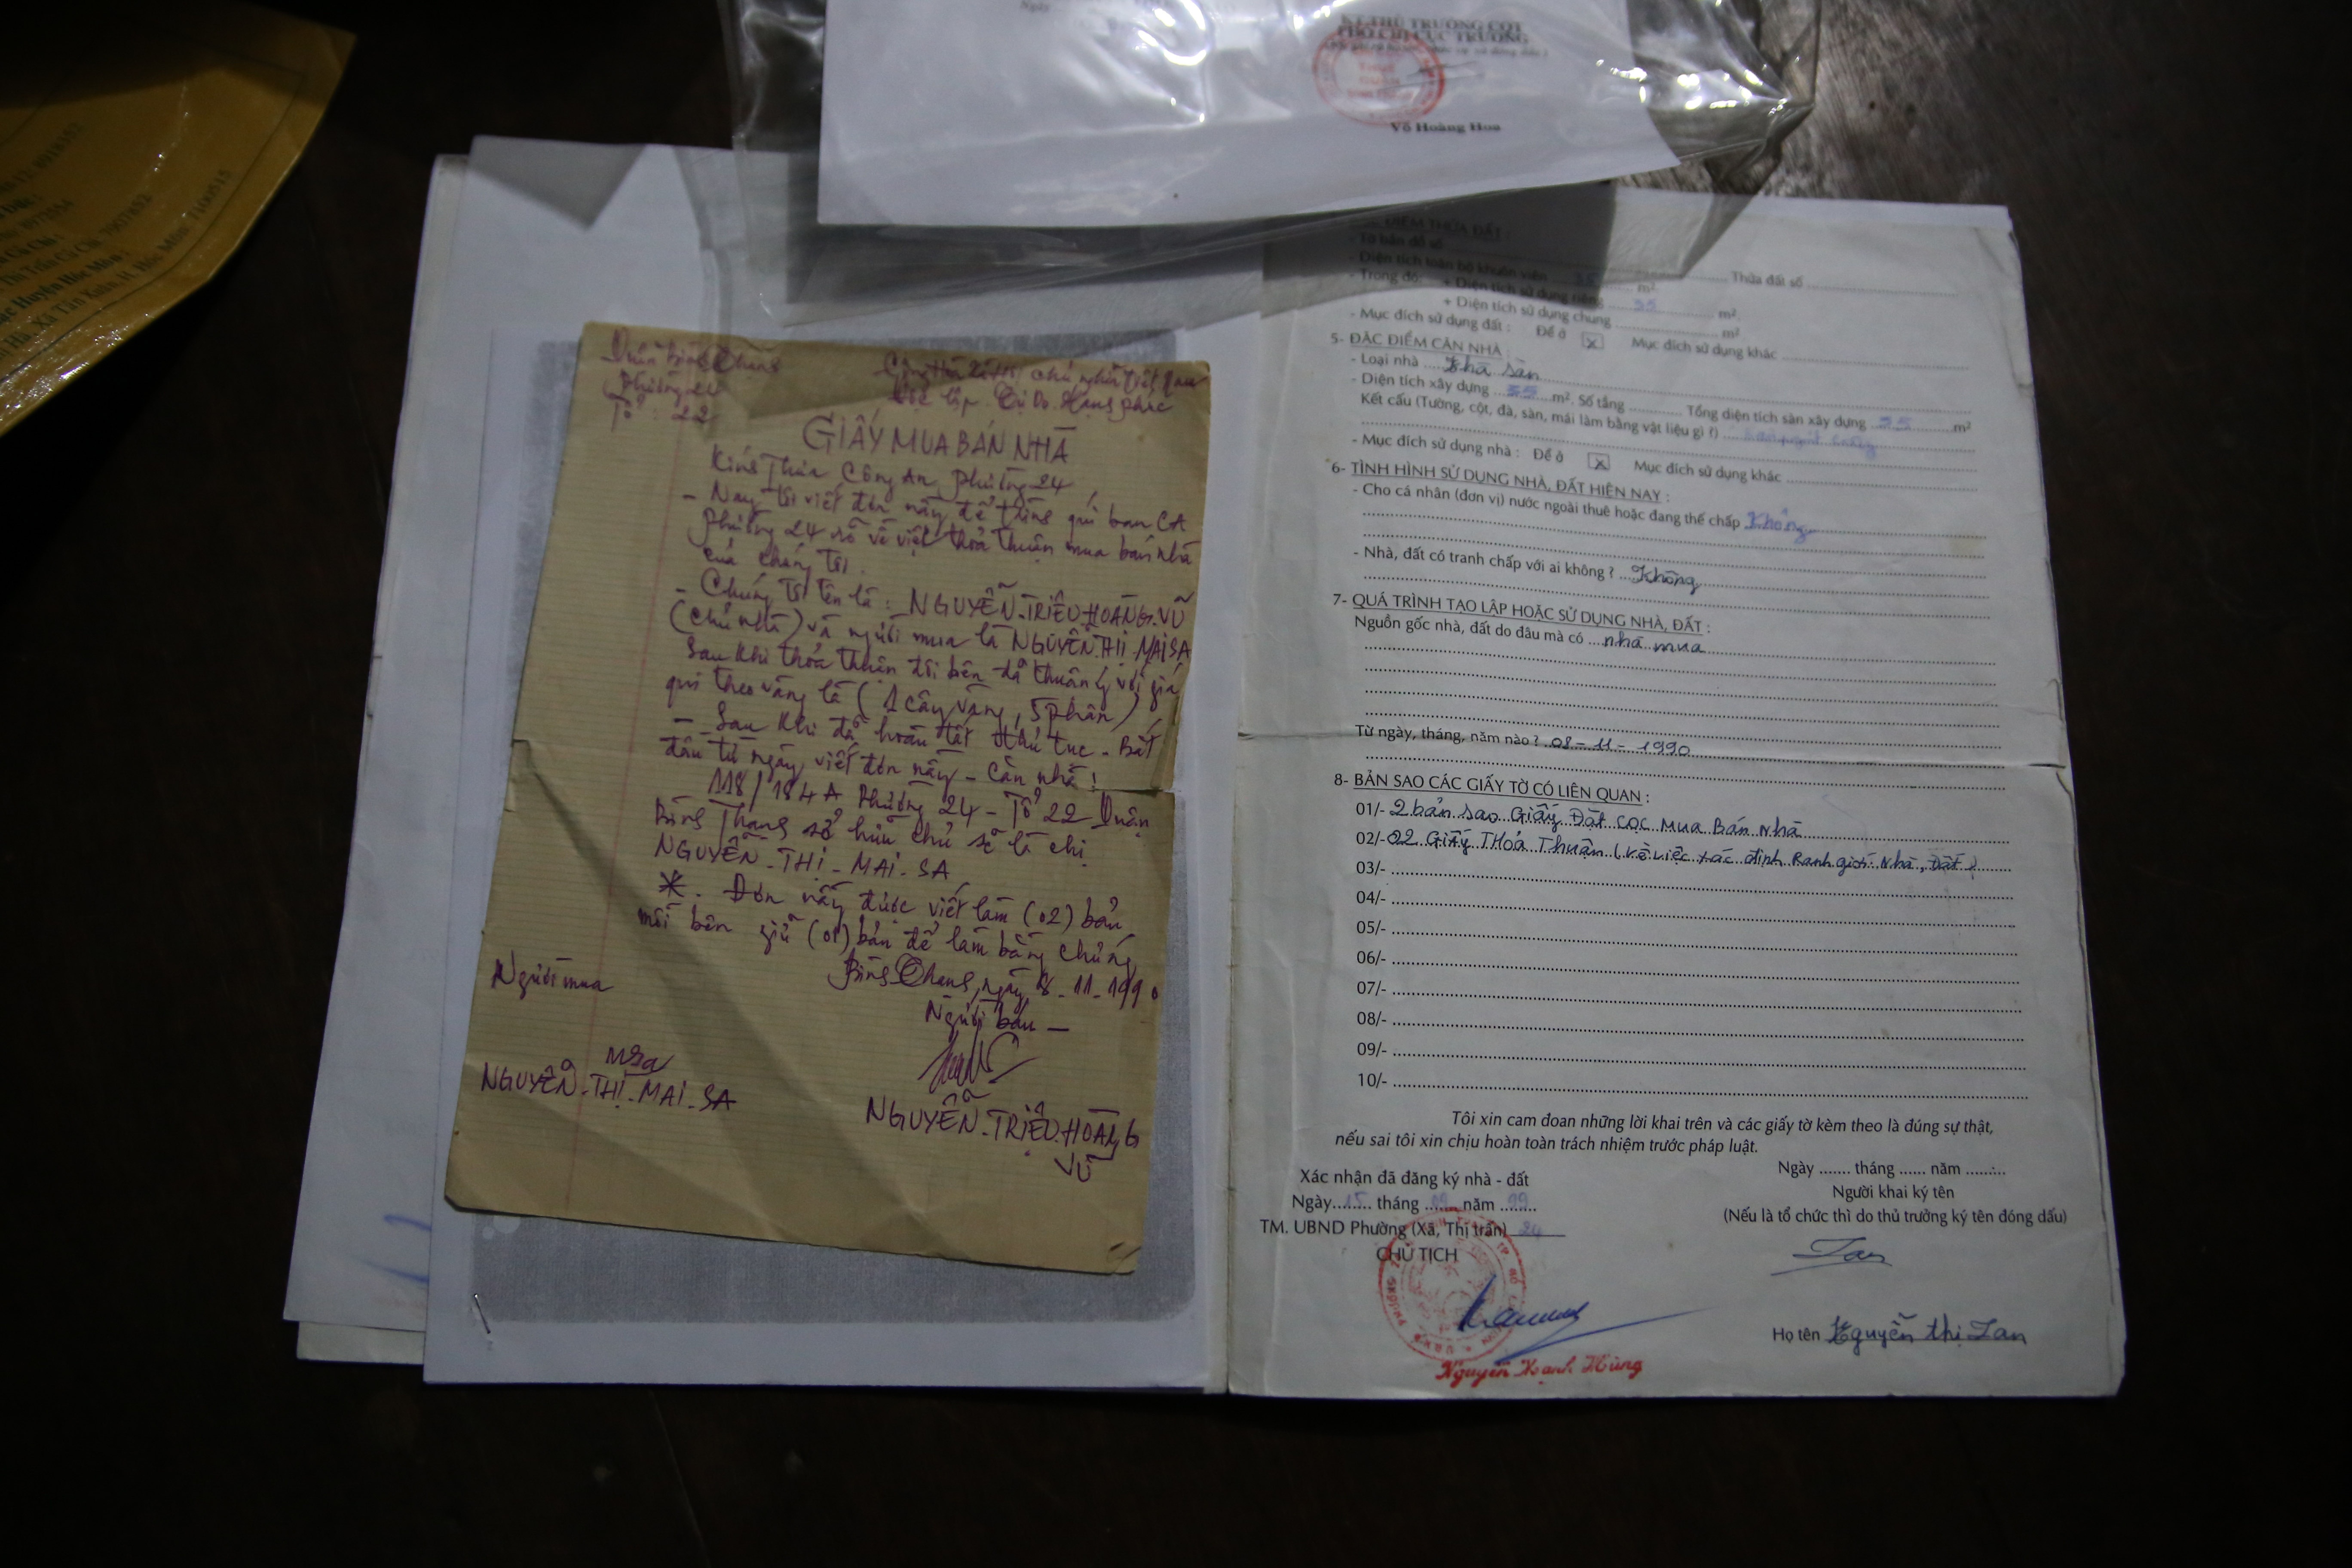 Ngày
KT.THỦ TRƯỞNG CQT
PHÓ CHI CỤC TRƯỞNG
Võ Hoàng Hoa
Xã Tân Xuân, H. Hóc Môn
Quận Bình Thạnh
Phường 24
Tổ : 22
Cộng Hòa Xã Hội chủ nghĩa Việt Nam
Độc lập Tự Do Hạnh phúc
GIẤY MUA BÁN NHÀ
Kính Thưa Công An phường 24
- Nay tôi viết đơn này để trình quí ban CA
phường 24 rõ về việt thỏa thuận mua bán nhà
của chúng tôi.
- Chúng tôi tên là : NGUYỄN-TRIỆU-HOÀNG-VŨ
(chủ nhà) và người mua là NGUYỄN.THỊ.MAI SA
Sau khi thỏa thuận đôi bên đã thuận ý với giá
qui theo vàng là (1 cây vàng, 5 phân)
- Sau khi đã hoàn tất thủ tục - Bắt
đầu từ ngày viết đơn này - căn nhà !
118/184A Phường 24 - Tổ 22 Quận
Bình Thạnh sở hữu chủ sẽ là chị
NGUYỄN - THỊ - MAI - SA
*. Đơn nầy được viết làm (02) bản
mỗi bên giữ (01) bản để làm bằng chứng
Bình Thạnh, ngày 8 - 11 - 1990
Người mua
Người bán -
MSa
NGUYỄN - THỊ - MAI - SA
NGUYỄN - TRIỆU - HOÀNG
VŨ
ĐIỂM THỬA ĐẤT :
- Tờ bản đồ số ........ Thửa đất số ........
- Diện tích toàn bộ khuôn viên 35 m²
- Trong đó: + Diện tích sử dụng riêng 35 m²
+ Diện tích sử dụng chung ........ m²
- Mục đích sử dụng đất : Để ở [x] Mục đích sử dụng khác ........
5- ĐẶC ĐIỂM CĂN NHÀ
- Loại nhà Nhà sàn
- Diện tích xây dựng 35 m². Số tầng ........ Tổng diện tích sàn xây dựng 35 m²
Kết cấu (Tường, cột, đà, sàn, mái làm bằng vật liệu gì ?)
- Mục đích sử dụng nhà : Để ở [x] Mục đích sử dụng khác ........
6- TÌNH HÌNH SỬ DỤNG NHÀ, ĐẤT HIỆN NAY :
- Cho cá nhân (đơn vị) nước ngoài thuê hoặc đang thế chấp Không
- Nhà, đất có tranh chấp với ai không ? Không
7- QUÁ TRÌNH TẠO LẬP HOẶC SỬ DỤNG NHÀ, ĐẤT :
Nguồn gốc nhà, đất do đâu mà có nhà mua
Từ ngày, tháng, năm nào ? 08 - 11 - 1990
8- BẢN SAO CÁC GIẤY TỜ CÓ LIÊN QUAN :
01/- 2 bản sao Giấy Đặt cọc Mua Bán Nhà
02/- 02 Giấy Thỏa Thuận (Về việc xác định Ranh giới Nhà, Đất)
03/-
04/-
05/-
06/-
07/-
08/-
09/-
10/-
Tôi xin cam đoan những lời khai trên và các giấy tờ kèm theo là đúng sự thật,
nếu sai tôi xin chịu hoàn toàn trách nhiệm trước pháp luật.
Xác nhận đã đăng ký nhà - đất
Ngày 15 tháng ...... năm 99
TM. UBND Phường (Xã, Thị trấn) 24
CHỦ TỊCH
Nguyễn Mạnh Hùng
Ngày ....... tháng ...... năm ........
Người khai ký tên
(Nếu là tổ chức thì do thủ trưởng ký tên đóng dấu)
Lan
Họ tên Nguyễn thị Lan